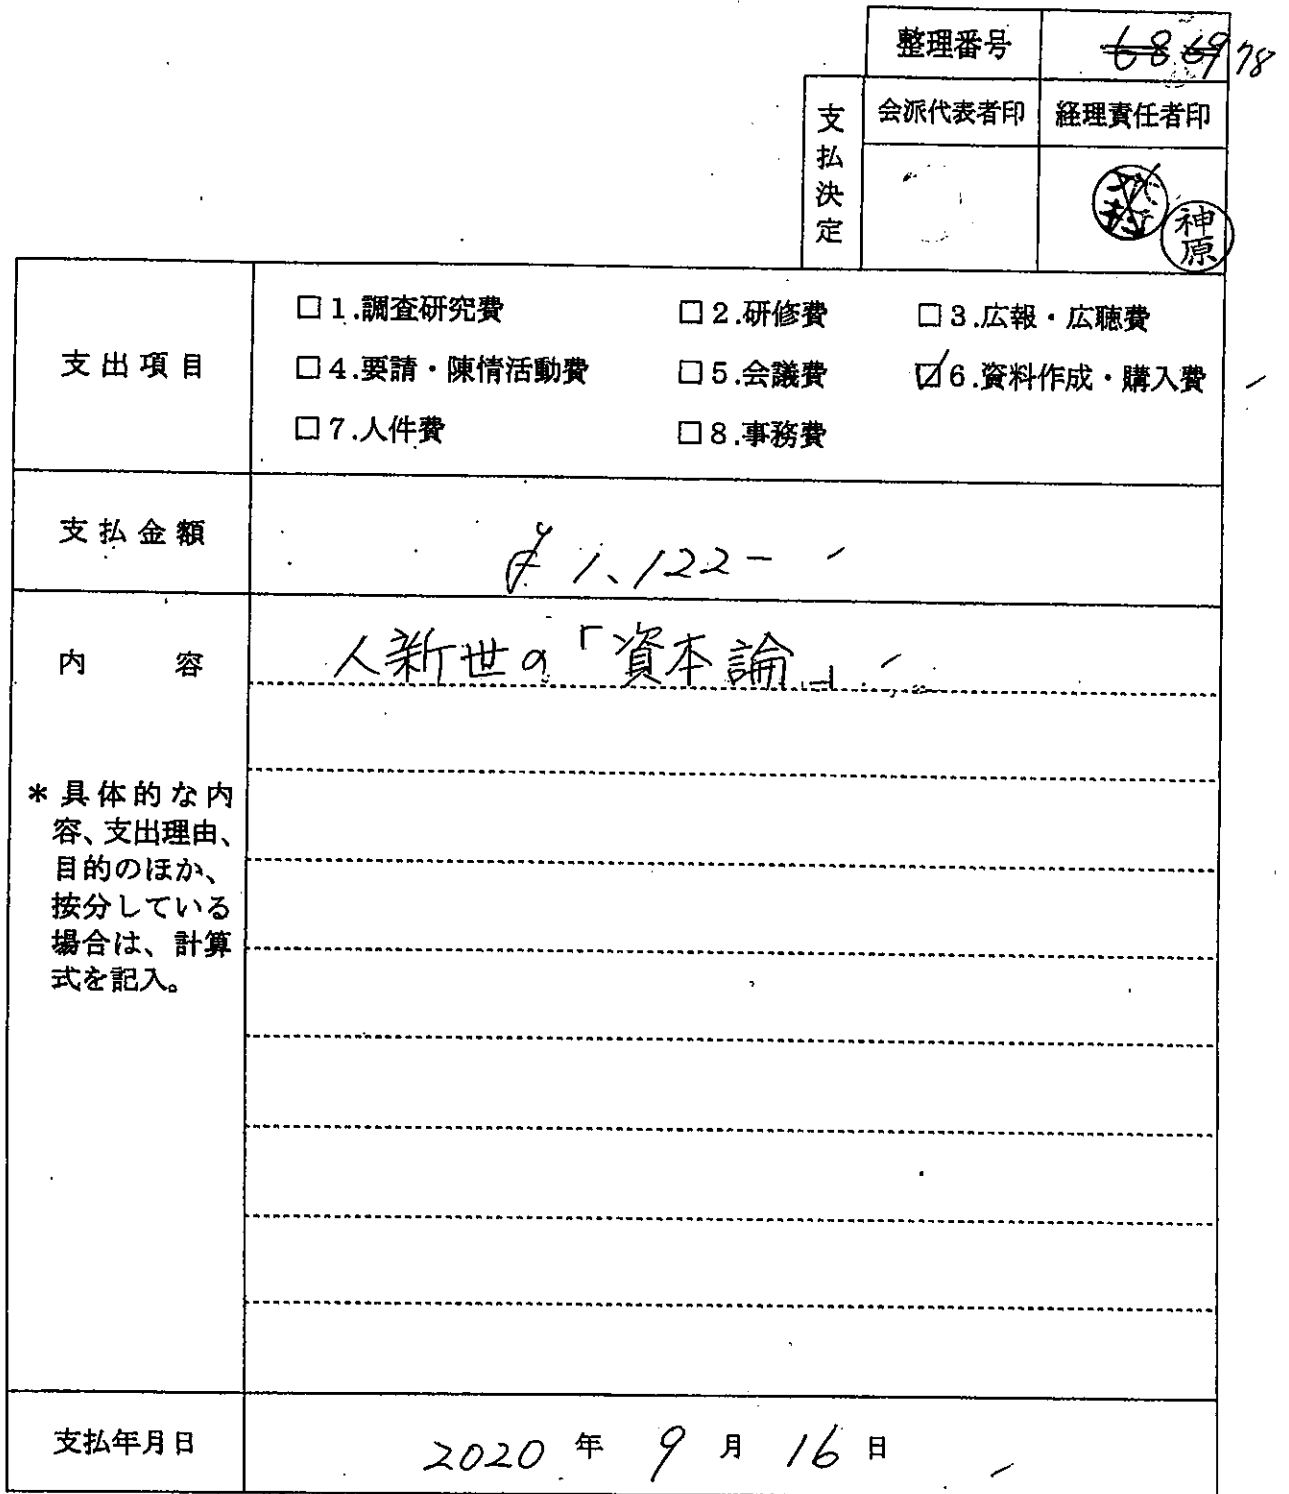 整理番号 68 69 78
支払決定
会派代表者印 経理責任者印
神原
支出項目
□1.調査研究費 □2.研修費 □3.広報・広聴費
□4.要請・陳情活動費 □5.会議費 ☑6.資料作成・購入費
□7.人件費 □8.事務費
支払金額 ¥1、122-
内容 人新世の「資本論」
*具体的な内
容、支出理由、
目的のほか、
按分している
場合は、計算
式を記入。
支払年月日 2020年9月16日